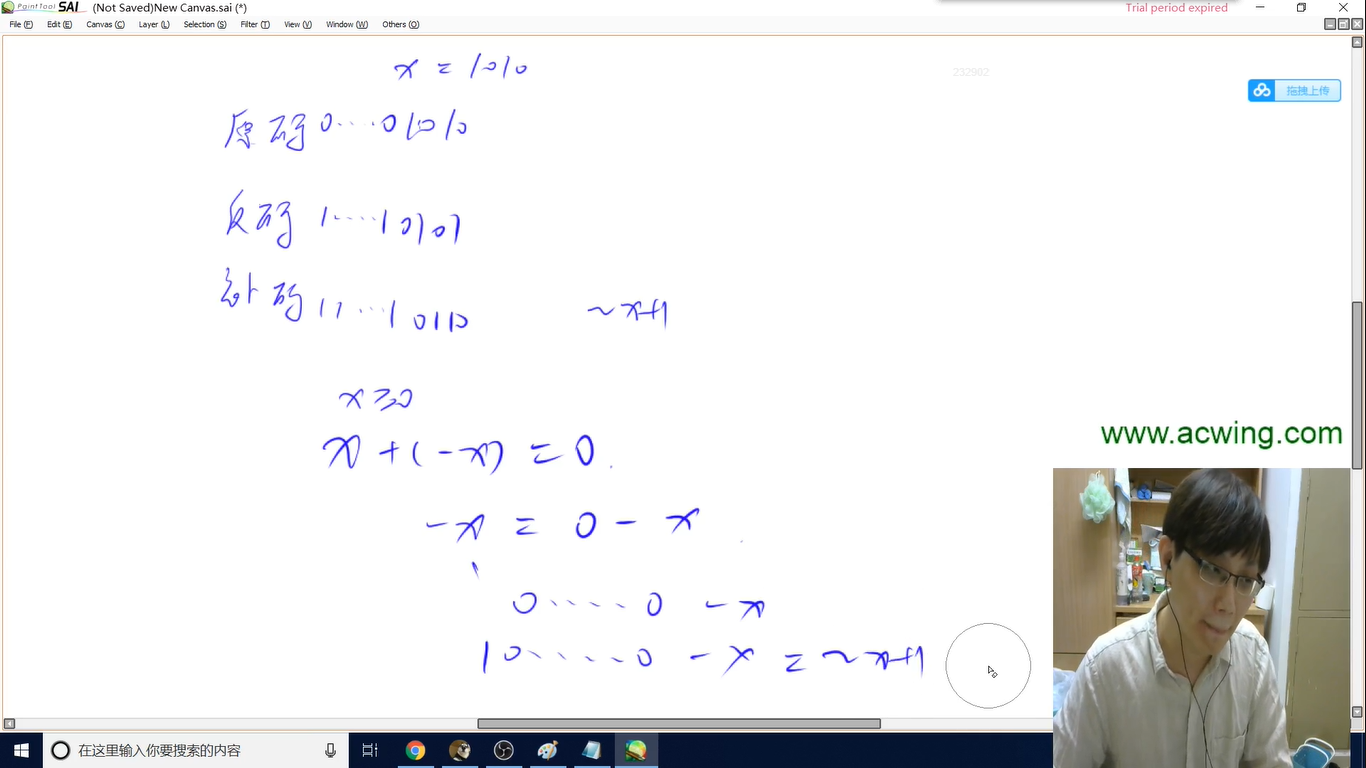 PaintTool SAI (Not Saved)New Canvas.sai (*)
Trial period expired
File (F) Edit (E) Canvas (C) Layer (L) Selection (S) Filter (T) View (V) Window (W) Others (O)
x = 1010
232902
拖拽上传
原码 0····01010
反码 1····10101
补码 11···10110
~x+1
x≥0
x+(-x) = 0.
www.acwing.com
-x = 0 - x
0·····0 - x
10·····0 - x = ~x+1
在这里输入你要搜索的内容